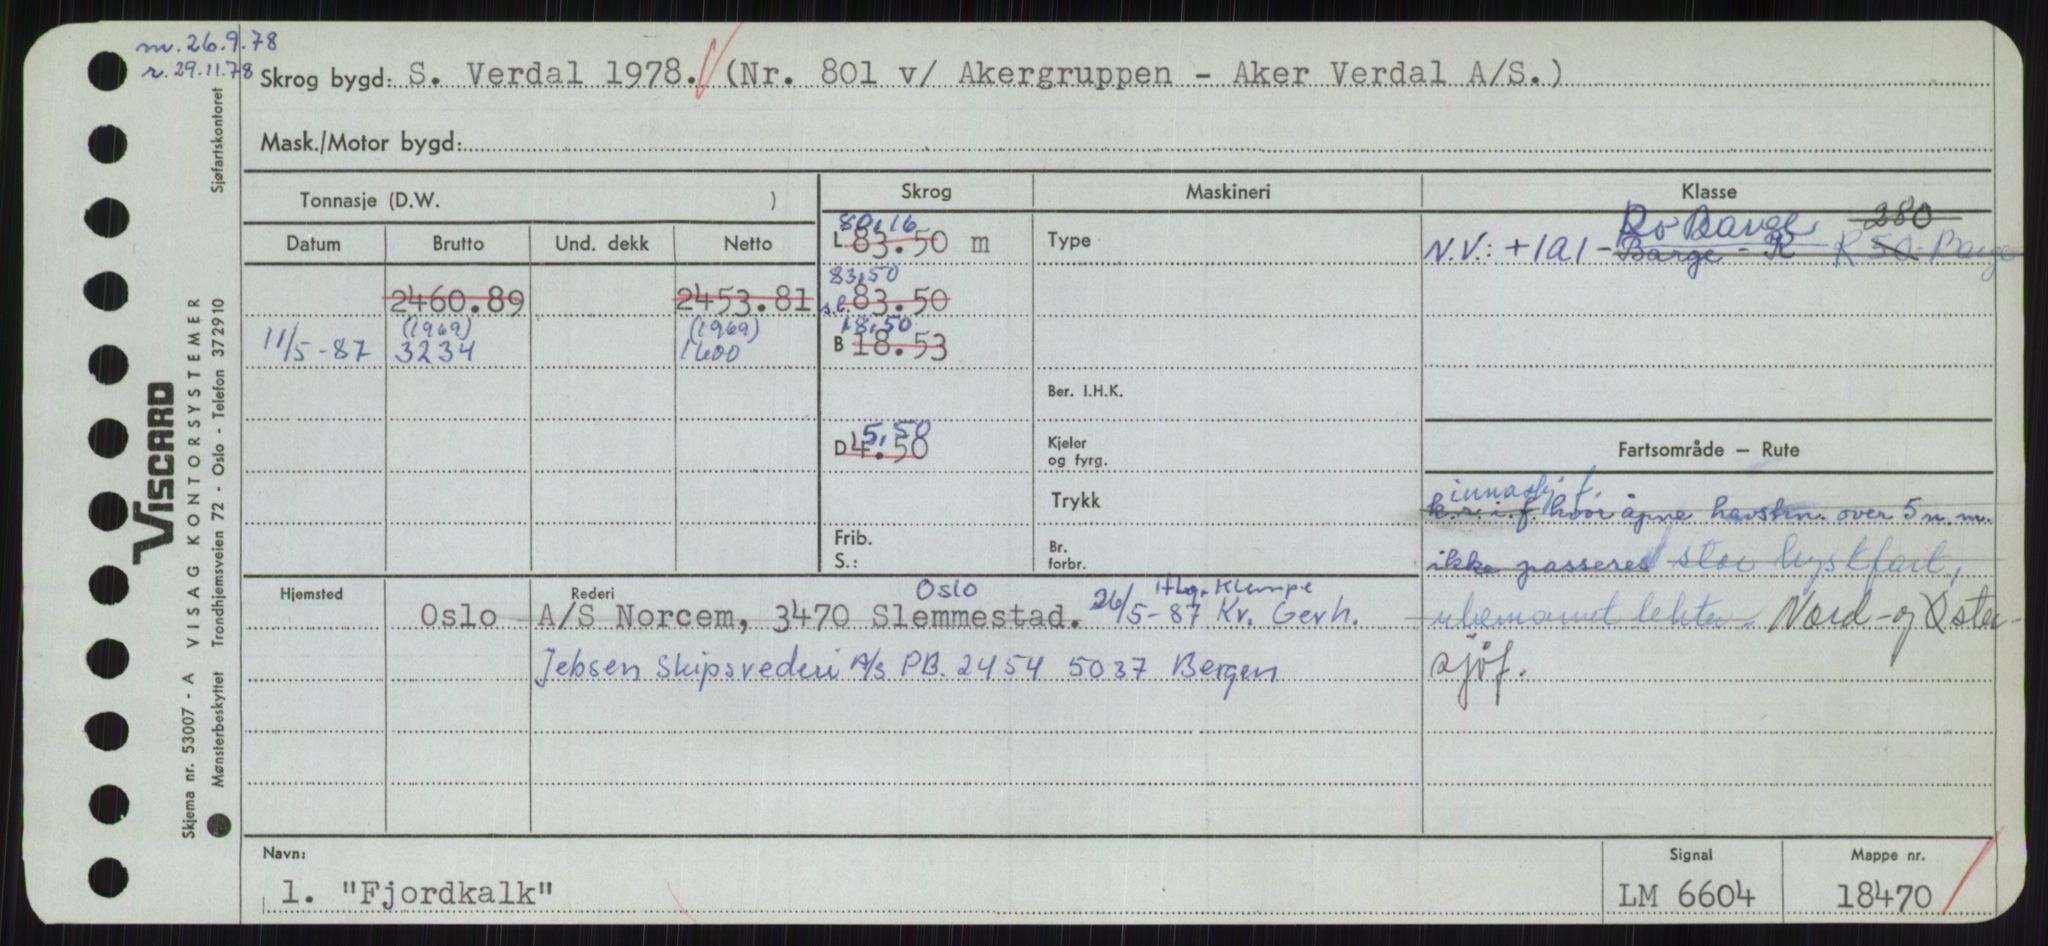 m. 26.9.78
r. 29.11.78
Skrog bygd: S. Verdal 1978. (Nr. 801 v/ Akergruppen - Aker Verdal A/S.)
Mask./Motor bygd:
Tonnasje (D.W. )
Skrog
Maskineri
Klasse
Datum
Brutto
Und. dekk
Netto
80,16
L 83.50 m
Type
Ro Barge 280
N.V.: +1A1 - Barge - R R 50 - Barge
2460.89
2453.81
83,50
s.l. 83.50
11/5-87
(1969)
3234
(1969)
1600
18,50
B 18.53
Ber. I.H.K.
5,50
D 4.50
Kjeler
og fyrg.
Fartsområde — Rute
Trykk
k.r.i.f. hvor åpne havstrn. over 5 n.m.
ikke passeres stor kystfart,
ubemannet lekter. Nord- og Øster-
sjöf.
Frib.
S.:
Br.
forbr.
Hjemsted
Rederi
Oslo
Oslo A/S Norcem, 3470 Slemmestad. 26/5-87 Kr. Gerh.
Jebsen Skipsrederi A/S PB. 2454 5037 Bergen
Navn:
1. "Fjordkalk"
Signal
LM 6604
Mappe nr.
18470
VISCARD
VISAG KONTORSYSTEMER
Skjema nr. 53007 - A
Mønsterbeskyttet Trondhjemsveien 72 - Oslo - Telefon 372910 Sjøfartskontoret